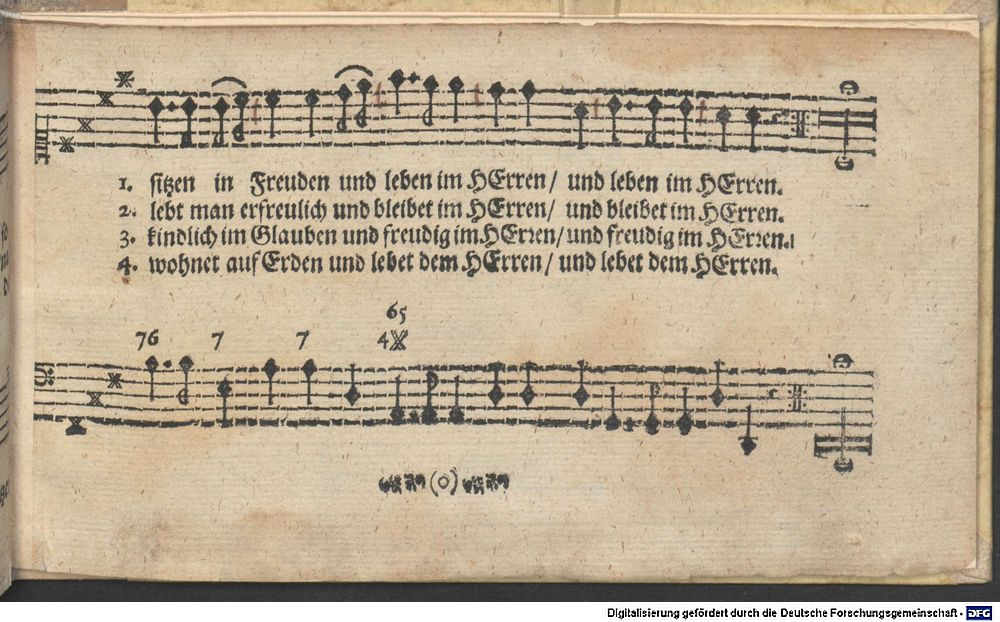 1. sitzen in Freuden und leben im HErren/ und leben im HErren.
2. lebt man erfreulich und bleibet im HErren/ und bleibet im HErren.
3. kindlich im Glauben und freudig im HErren/ und freudig im HErren.
4. wohnet auf Erden und lebet dem HErren/ und lebet dem HErren.
65
76 7 7 4
Digitalisierung gefördert durch die Deutsche Forschungsgemeinschaft - DFG